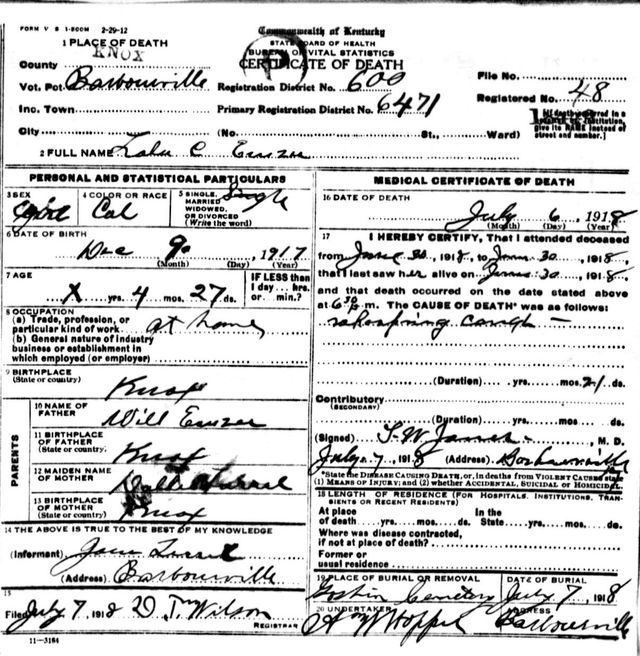 FORM V S 1-500M 2-29-12
Commonwealth of Kentucky
STATE BOARD OF HEALTH
BUREAU OF VITAL STATISTICS
CERTIFICATE OF DEATH
1 PLACE OF DEATH
County KNOX
Vot. Pct. Barbourville Registration District No. 600 File No.
Inc. Town Primary Registration District No. 6471 Registered No. 48
City (No. St., Ward)
[If death occurred in a Hospital or Institution, give its NAME instead of street and number.]
2 FULL NAME
PERSONAL AND STATISTICAL PARTICULARS
3 SEX
4 COLOR OR RACE Col
5 SINGLE, MARRIED WIDOWED, OR DIVORCED (Write the word) Single
6 DATE OF BIRTH
Dec 9, 1917
(Month) (Day) (Year)
7 AGE
X yrs. 4 mos. 27 ds.
IF LESS than 1 day... hrs. or ... min.?
8 OCCUPATION
(a) Trade, profession, or particular kind of work at home
(b) General nature of industry business or establishment in which employed (or employer)
9 BIRTHPLACE
(State or country) Knox
PARENTS
10 NAME OF FATHER Will
11 BIRTHPLACE OF FATHER (State or country) Knox
12 MAIDEN NAME OF MOTHER
13 BIRTHPLACE OF MOTHER (State or country) Knox
14 THE ABOVE IS TRUE TO THE BEST OF MY KNOWLEDGE
(Informant)
(Address) Barbourville
15
Filed July 7, 1918 D. M. Wilson
REGISTRAR
11-3184
MEDICAL CERTIFICATE OF DEATH
16 DATE OF DEATH
July 6, 1918
(Month) (Day) (Year)
17 I HEREBY CERTIFY, That I attended deceased
from June 30, 1918, to June 30, 1918,
that I last saw her alive on June 30, 1918,
and that death occurred on the date stated above
at 6 30 p.m. The CAUSE OF DEATH* was as follows:
whooping cough
(Duration) yrs. mos. 21 ds.
Contributory
(SECONDARY)
(Duration) yrs. mos. ds.
(Signed) M. D.
July 7, 1918 (Address) Barbourville
*State the DISEASE CAUSING DEATH, or, in deaths from VIOLENT CAUSES state (1) MEANS OF INJURY; and (2) whether ACCIDENTAL, SUICIDAL or HOMICIDAL.
18 LENGTH OF RESIDENCE (FOR HOSPITALS, INSTITUTIONS, TRANSIENTS OR RECENT RESIDENTS)
At place of death yrs. mos. ds. In the State yrs. mos. ds.
Where was disease contracted, if not at place of death?
Former or usual residence
19 PLACE OF BURIAL OR REMOVAL Cemetery
DATE OF BURIAL July 7, 1918
20 UNDERTAKER
ADDRESS Barbourville